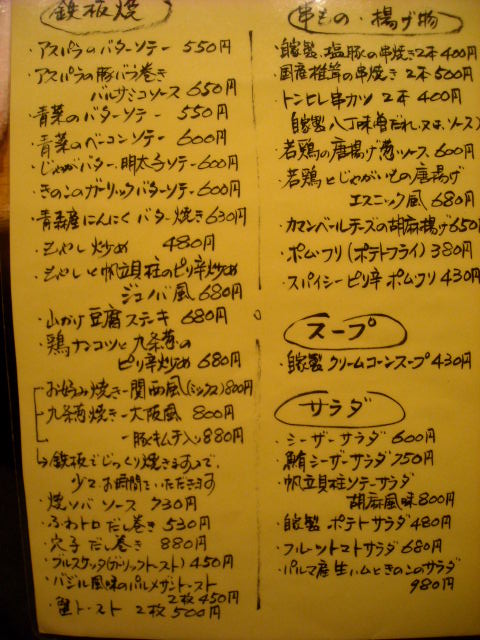 鉄板焼
・アスパラのバターソテー 550円
・アスパラの豚バラ巻き
バルサミコソース 650円
・青菜のバターソテー 550円
・青菜のベーコンソテー 600円
・じゃがバター明太子ソテー 600円
・きのこのガーリックバターソテー 600円
・青森産にんにくバター焼き 630円
・もやし炒め 480円
・もやしと帆立貝柱のピリ辛炒め
ジェノバ風 680円
・山かけ豆腐ステーキ 680円
・鶏ナンコツと九条葱の
ピリ辛炒め 680円
お好み焼き－関西風(ミックス) 800円
九条葱焼き－大阪風 800円
－豚キムチ入り 880円
↳鉄板でじっくり焼きますので、
少々お時間をいただきます
・焼ソバ ソース 730円
・ふわトロだし巻き 530円
・穴子だし巻き 880円
・ブルスケッタ(ガーリックトースト) 450円
・バジル風味のパルメザントースト
2枚 450円
・蟹トースト 2枚 500円
串もの・揚げ物
・自家製塩豚の串焼き 2本 400円
・国産椎茸の串焼き 2本 500円
・トンヒレ串カツ 2本 400円
自家製八丁味噌だれ、又は、ソース)
・若鶏の唐揚げ葱ソース、600円
・若鶏とじゃがいもの唐揚げ
エスニック風 680円
・カマンベールチーズの胡麻揚げ 650円
・ポム・フリ(ポテトフライ) 380円
・スパイシーピリ辛ポム・フリ 430円
スープ
・自家製クリームコーンスープ 430円
サラダ
・シーザーサラダ 600円
・鮪シーザーサラダ 750円
・帆立貝柱ソテーサラダ
胡麻風味 800円
・自家製ポテトサラダ 480円
・フルーツトマトサラダ 680円
・パルマ産生ハムときのこのサラダ
980円